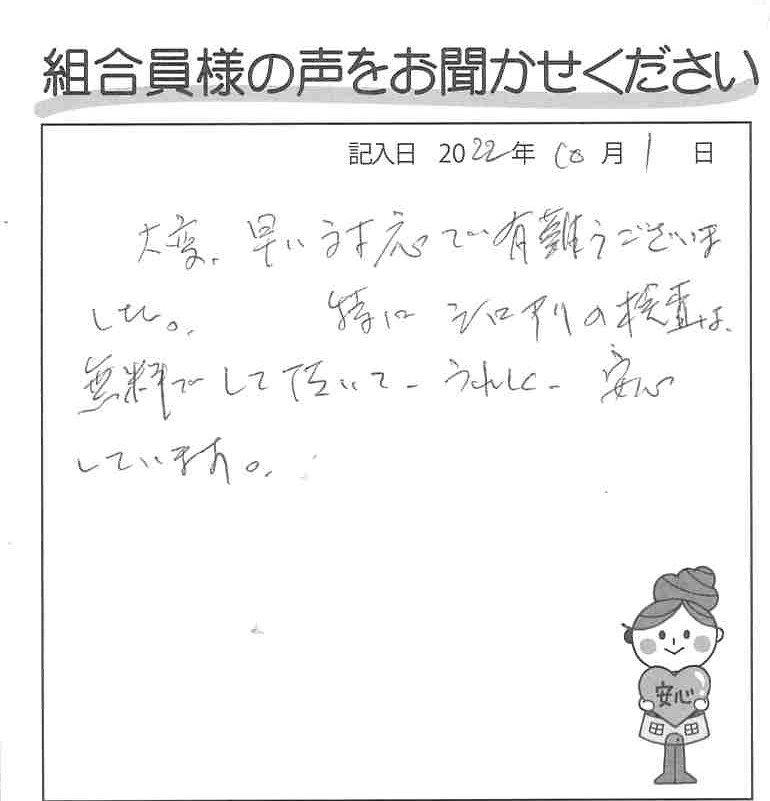 組合員様の声をお聞かせください
記入日 2022年 10月 1日
大変、早い対応で有難うございま
した。 特にシロアリの検査は、
無料でして頂いて、うれしく、安心
しています。
安心